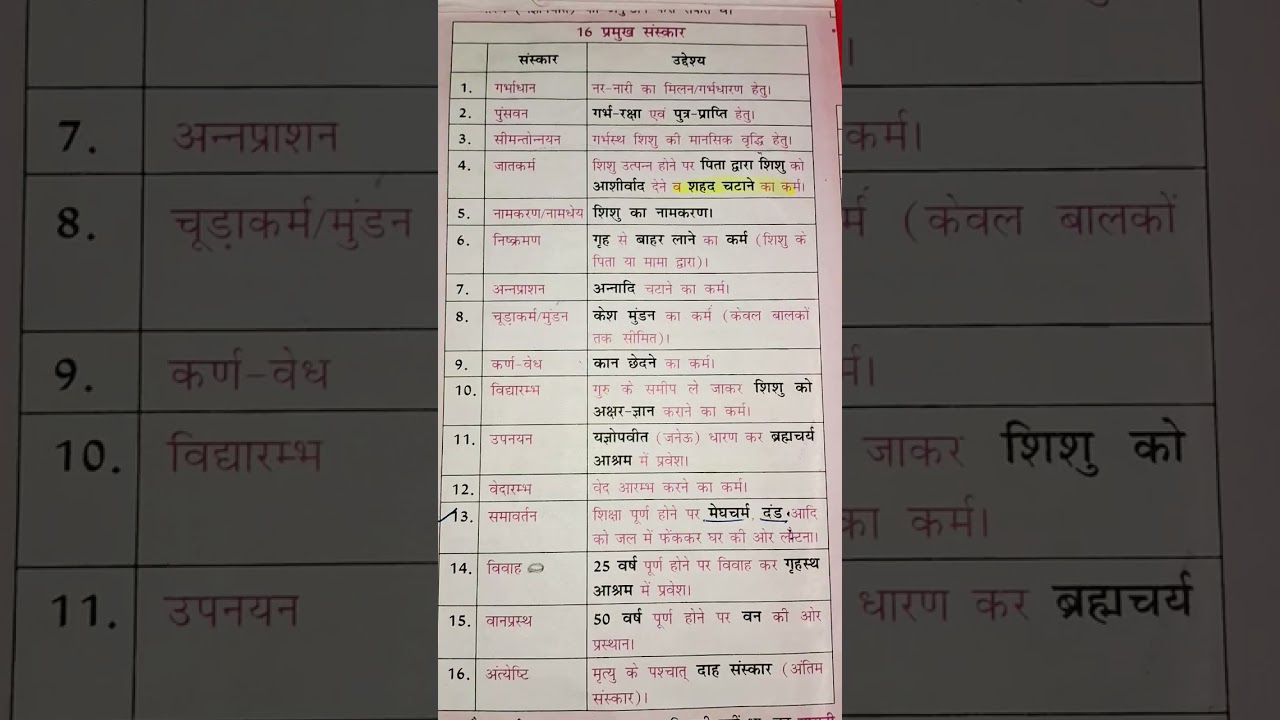 16 प्रमुख संस्कार
संस्कार उद्देश्य
1. गर्भाधान नर-नारी का मिलन/गर्भधारण हेतु।
2. पुंसवन गर्भ-रक्षा एवं पुत्र-प्राप्ति हेतु।
3. सीमन्तोन्नयन गर्भस्थ शिशु की मानसिक वृद्धि हेतु।
4. जातकर्म शिशु उत्पन्न होने पर पिता द्वारा शिशु को
आशीर्वाद देने व शहद चटाने का कर्म।
5. नामकरण/नामधेय शिशु का नामकरण।
6. निष्क्रमण गृह से बाहर लाने का कर्म (शिशु के
पिता या मामा द्वारा)।
7. अन्नप्राशन अन्नादि चटाने का कर्म।
8. चूड़ाकर्म/मुंडन केश मुंडन का कर्म (केवल बालकों
तक सीमित)।
9. कर्ण-वेध कान छेदने का कर्म।
10. विद्यारम्भ गुरु के समीप ले जाकर शिशु को
अक्षर-ज्ञान कराने का कर्म।
11. उपनयन यज्ञोपवीत (जनेऊ) धारण कर ब्रह्मचर्य
आश्रम में प्रवेश।
12. वेदारम्भ वेद आरम्भ करने का कर्म।
13. समावर्तन शिक्षा पूर्ण होने पर मेघचर्म, दंड आदि
को जल में फेंककर घर की ओर लौटना।
14. विवाह 25 वर्ष पूर्ण होने पर विवाह कर गृहस्थ
आश्रम में प्रवेश।
15. वानप्रस्थ 50 वर्ष पूर्ण होने पर वन की ओर
प्रस्थान।
16. अंत्येष्टि मृत्यु के पश्चात् दाह संस्कार (अंतिम
संस्कार)।
7. अन्नप्राशन कर्म।
8. चूड़ाकर्म/मुंडन (केवल बालकों
9. कर्ण-वेध
10. विद्यारम्भ जाकर शिशु को
का कर्म।
11. उपनयन धारण कर ब्रह्मचर्य